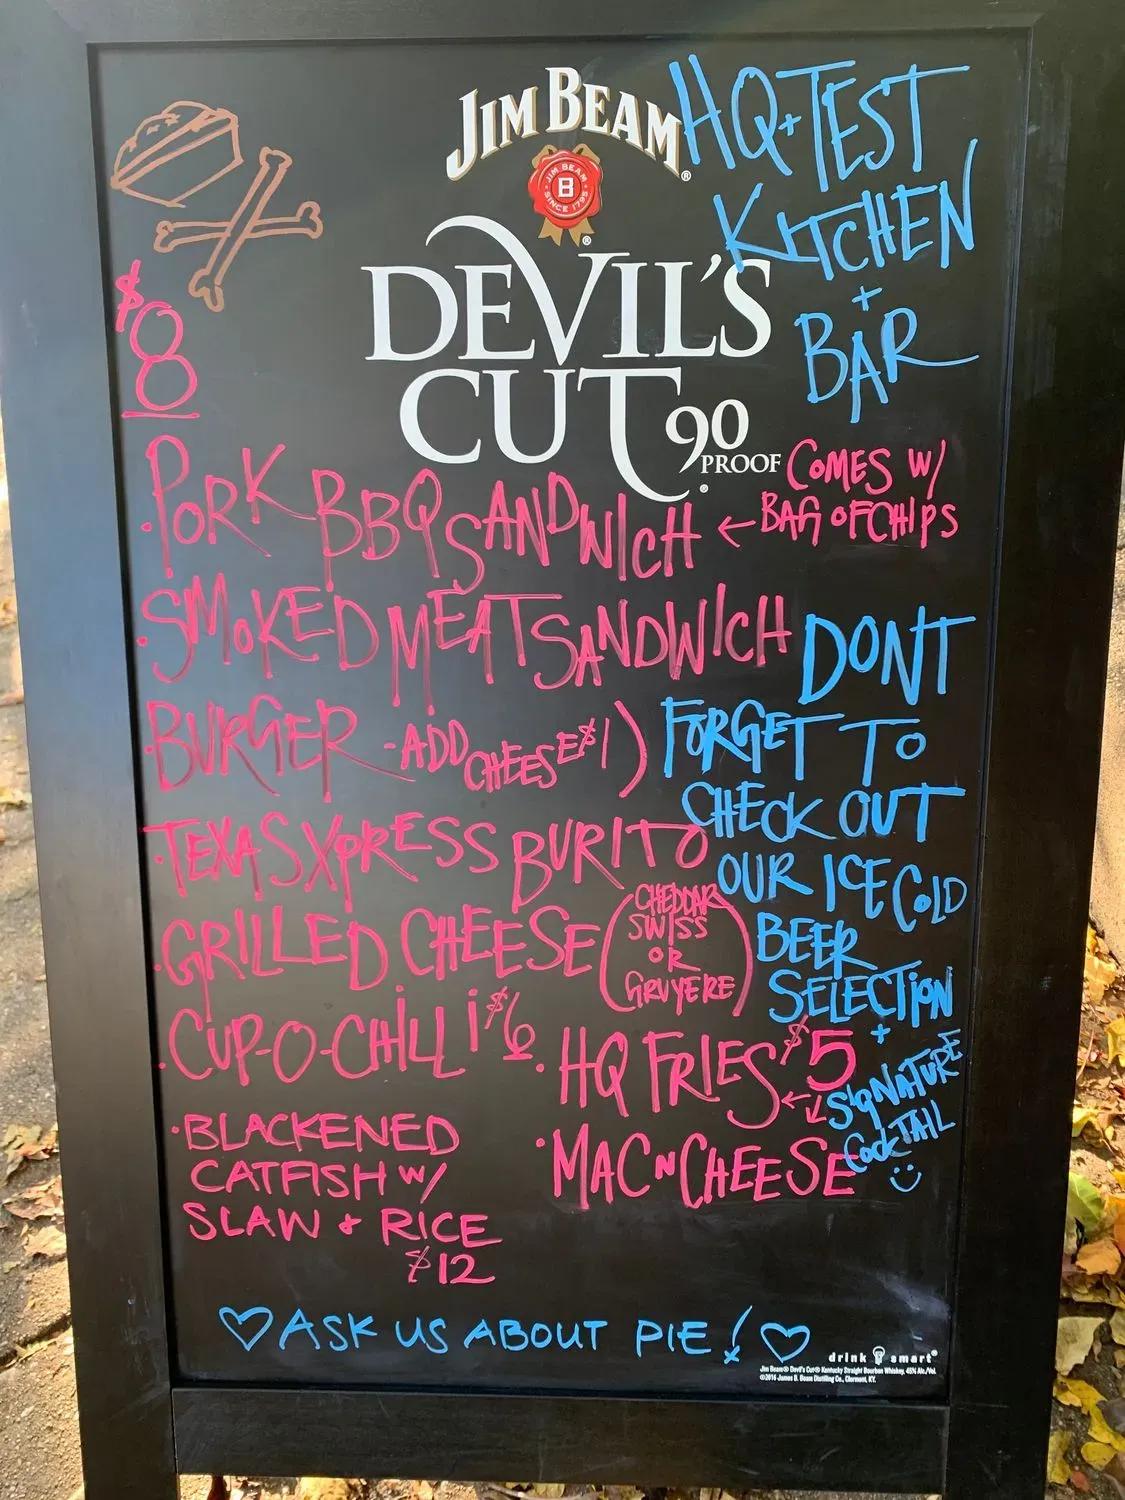 JIM BEAM®
JIM BEAM
B
SINCE 1795
®
DEVIL'S
CUT 90
PROOF
HQ+TEST
KITCHEN
+
BAR
$8
·PORK BBQ SANDWICH ← COMES W/
BAG OF CHIPS
·SMOKED MEAT SANDWICH
·BURGER -ADD CHEESE $1)
·TEXAS XPRESS BURITO
·GRILLED CHEESE (CHEDDAR
SWISS
OR
GRUYERE)
·CUP-O-CHILLI $6
·HQ FRIES $5
·MAC N CHEESE
·BLACKENED
CATFISH W/
SLAW + RICE
$12
DONT
FORGET TO
CHECK OUT
OUR ICE COLD
BEER
SELECTION
+
SIGNATURE
COCKTAIL
♡ ASK US ABOUT PIE! ♡
drink smart®
Jim Beam® Devil's Cut® Kentucky Straight Bourbon Whiskey, 45% Alc./Vol.
©2016 James B. Beam Distilling Co., Clermont, KY.